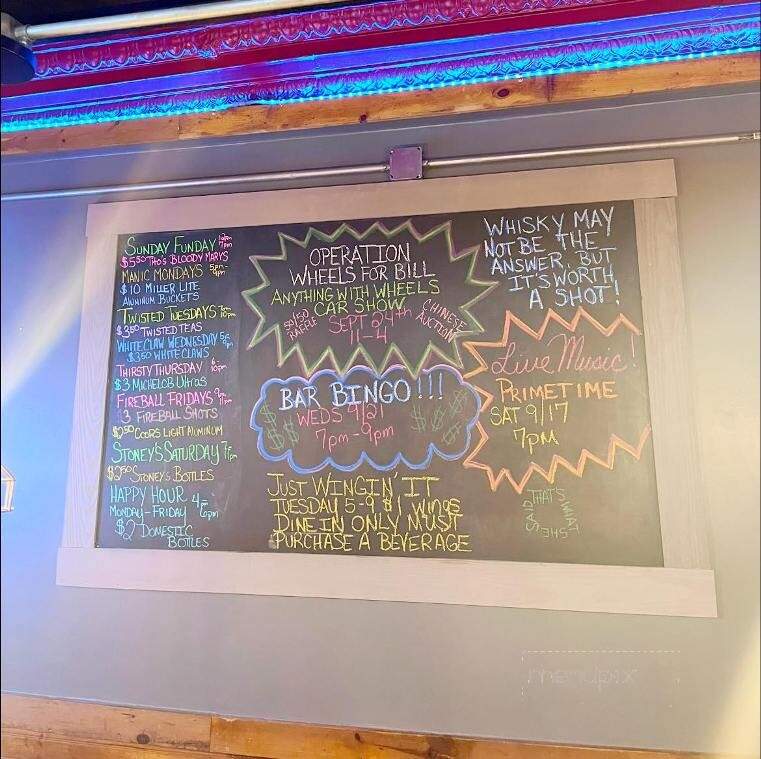 SUNDAY FUNDAY
$5.50 THO'S BLOODY MARYS
MANIC MONDAYS 5pm-
9pm
$10 MILLER LITE
ALUMINUM BUCKETS
TWISTED TUESDAYS
$3.50 TWISTED TEAS
WHITECLAW WEDNESDAY
$3.50 WHITE CLAWS
THIRSTY THURSDAY
$3 MICHELOB ULTRAS
FIREBALL FRIDAYS
$3 FIREBALL SHOTS
$2.50 COORS LIGHT ALUMINUM
STONEY'S SATURDAY
$2.50 STONEY'S BOTTLES
HAPPY HOUR 4-
MONDAY-FRIDAY 6pm
$2 DOMESTIC
BOTTLES
OPERATION
WHEELS FOR BILL
ANYTHING WITH WHEELS
CAR SHOW
50/50
RAFFLE
SEPT 24th
11-4
CHINESE
AUCTION
BAR BINGO!!!
WEDS 9/21
7pm-9pm
$$$ $$$
JUST WINGIN' IT
TUESDAY 5-9 $1 WINGS
DINE IN ONLY MUST
PURCHASE A BEVERAGE
WHISKY MAY
NOT BE THE
ANSWER, BUT
IT'S WORTH
A SHOT!
Live Music!
PRIMETIME
SAT 9/17
7PM
THAT'S
WHAT
SHE
SAID
menupix